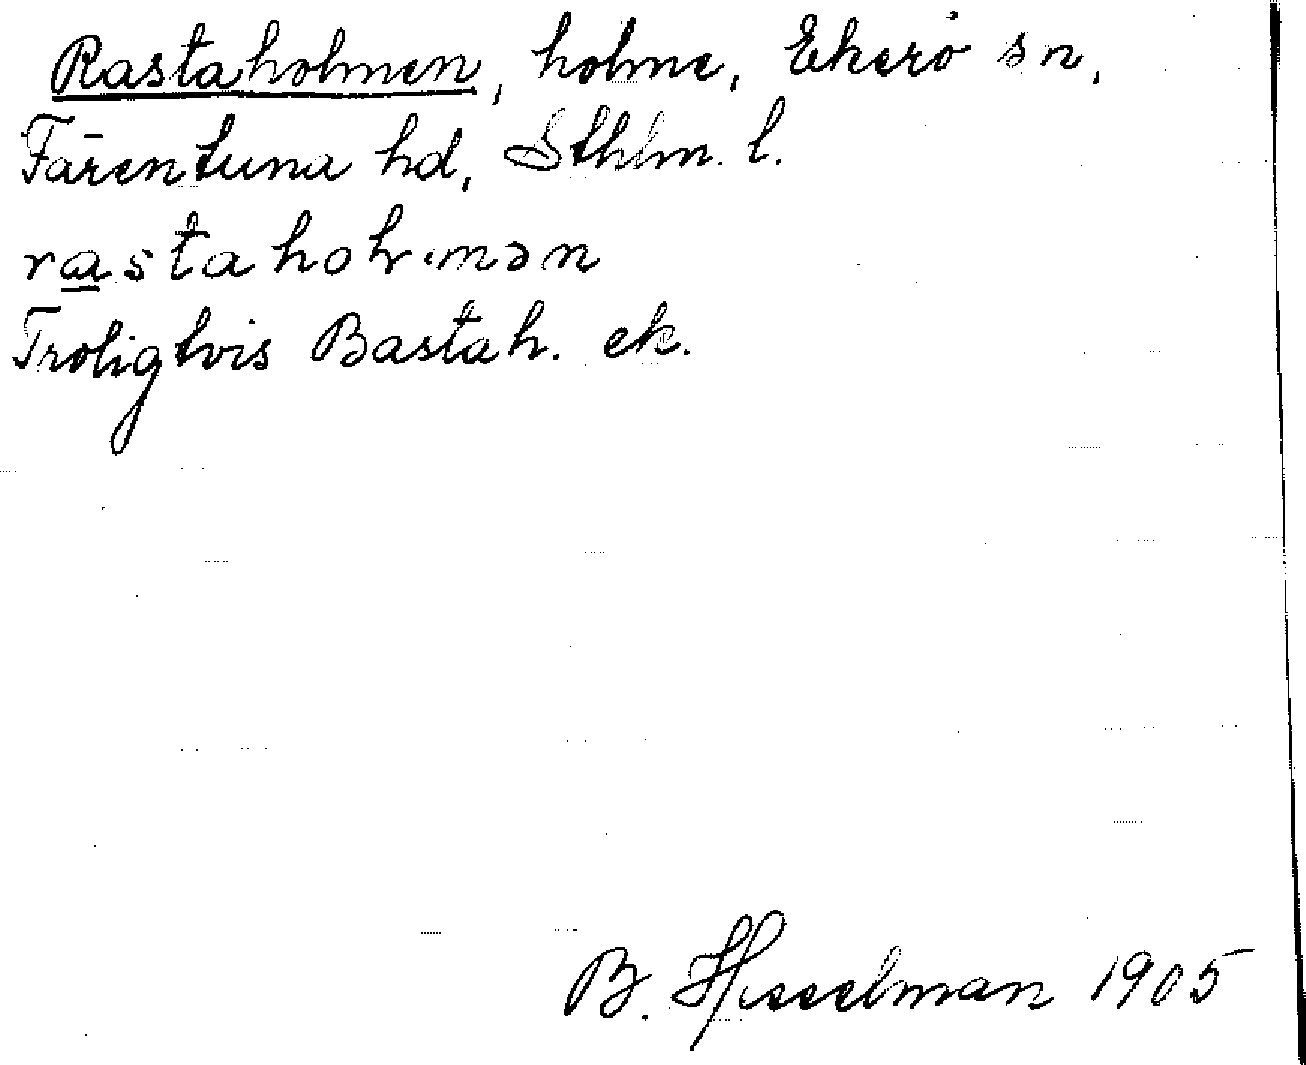 Rastaholmen, holme, Ekerö sn,
Färentuna hd, Sthlm. l.
Troligtvis Bastah. ek.
B. Hesselman 1905